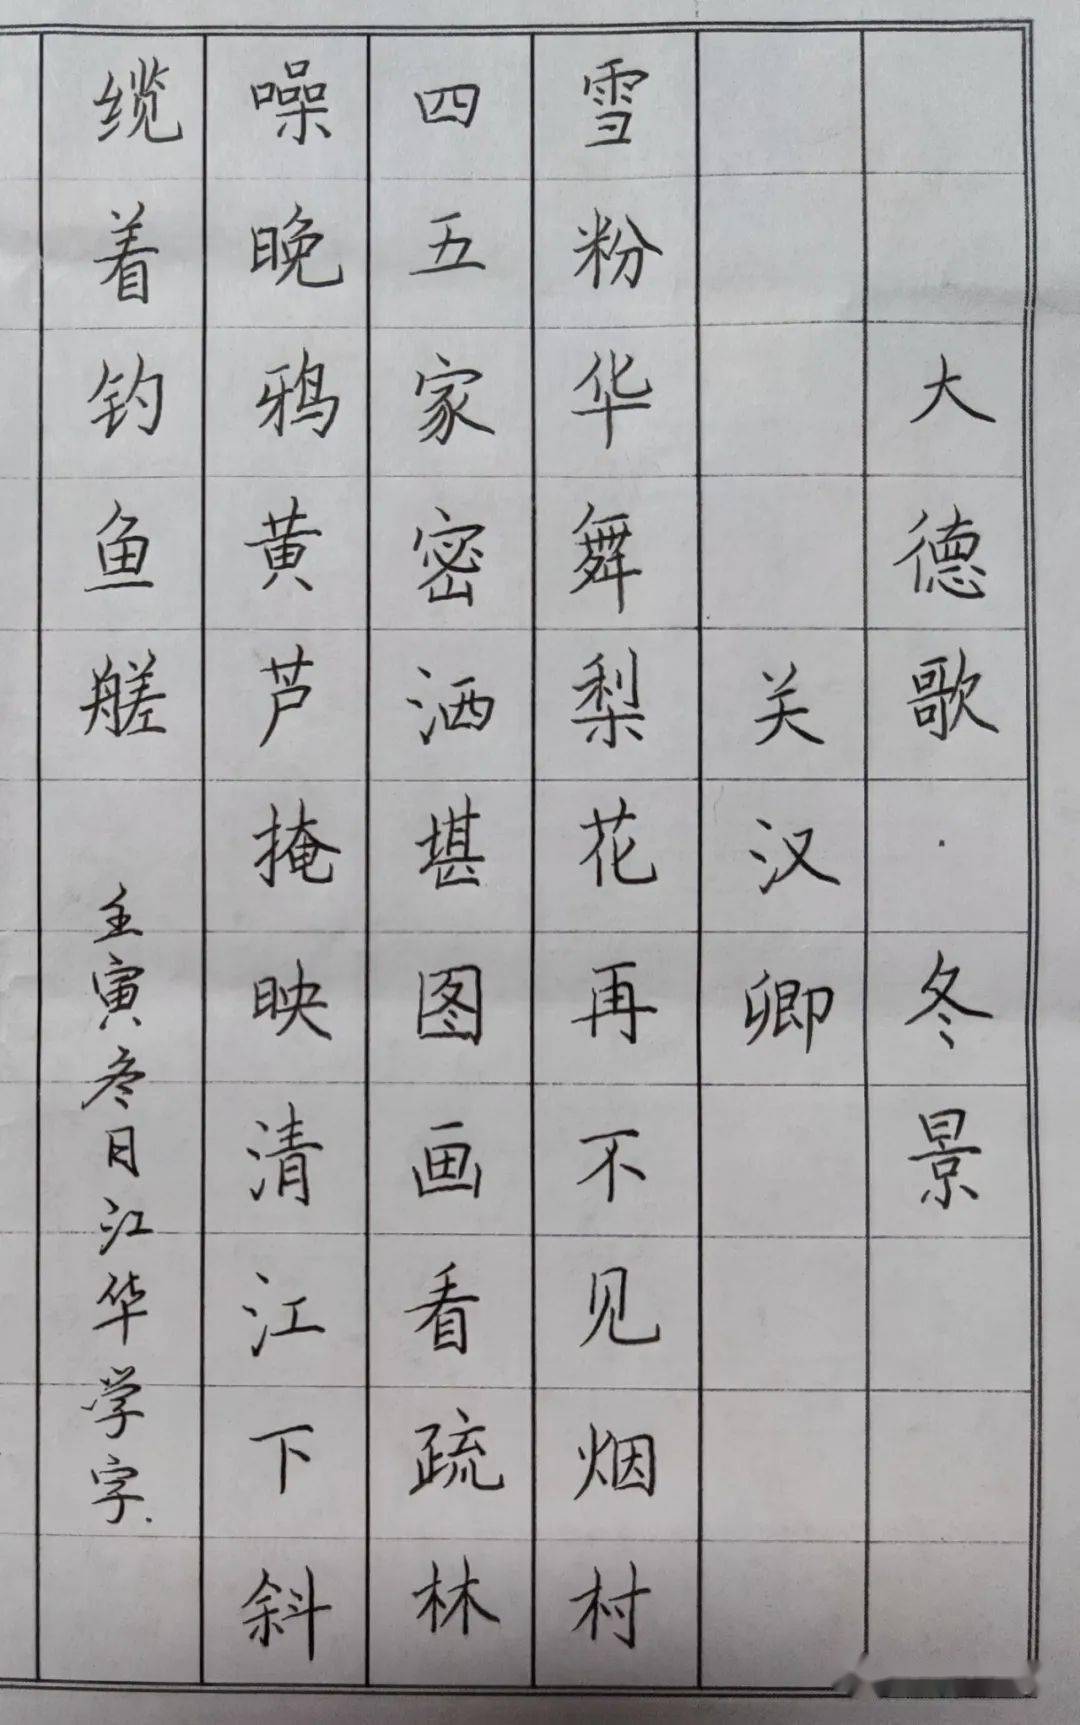 大德歌·冬景
关汉卿
雪粉华舞梨花再不见烟村
四五家密洒堪图画看疏林
噪晚鸦黄芦掩映清江下斜
缆着钓鱼艖
壬寅冬月江华学字.